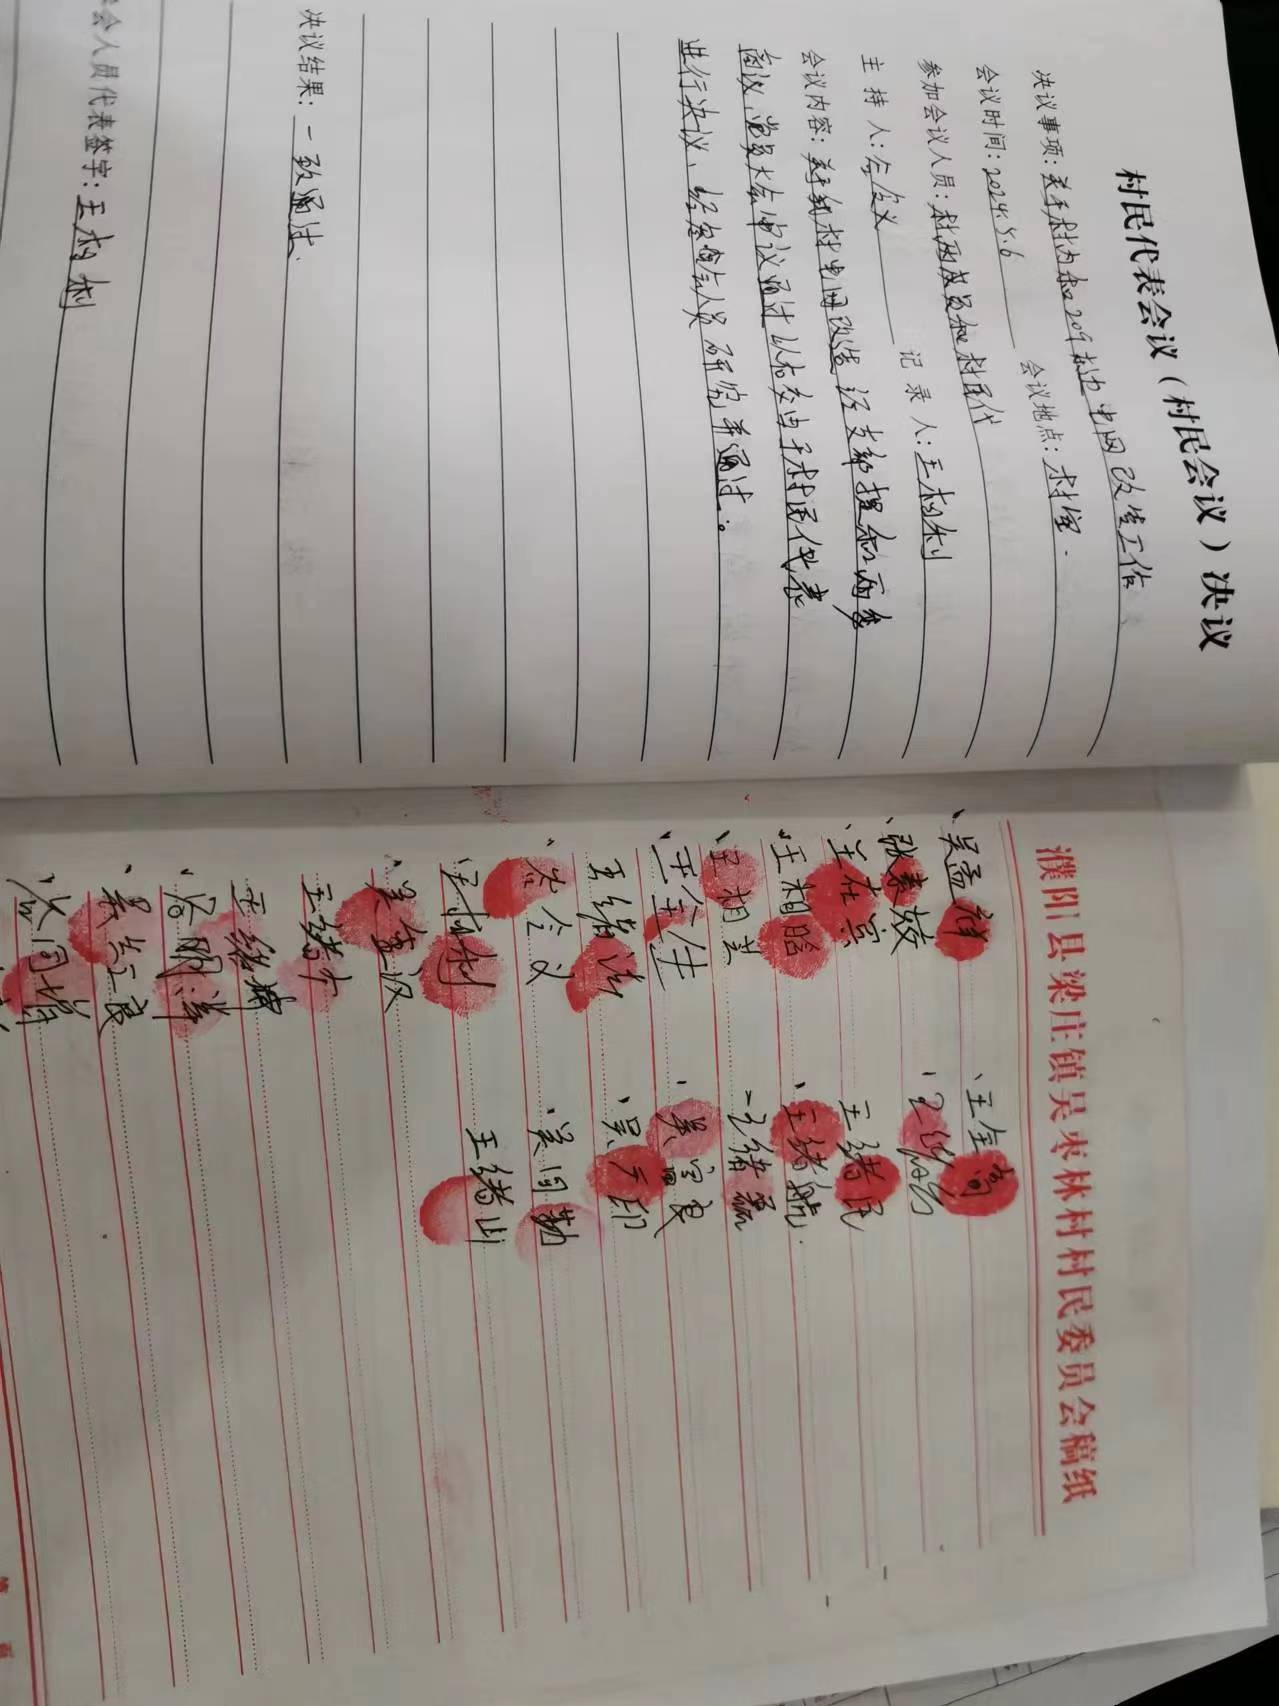 村民代表会议（村民会议）决议
决议事项：关于村内和209村边电网改造工作
会议时间：2024.5.6 会议地点：村室.
参加会议人员：村两委员和村民代
主 持 人：谷会义 记 录 人：王相利
会议内容：关于到村电网改造经支部提和两委
商议.党员大会审议通过以后交由于村民代表
进行决议、经参会人员研究并通过.。
决议结果：一致通过.
会人员代表签字：王相利
濮阳县梁庄镇吴枣林村村民委员会稿纸
吴孟祥 王全高
张素敏
王在宾 王绪民
王相晗 王绪航
王相芝 王绪磊
王全生 吴富良
王绪 吴广印
谷会义 吴同勤
王相利 王绪山
吴 汉
王绪
王绪
谷
吴 良
谷同
第 页